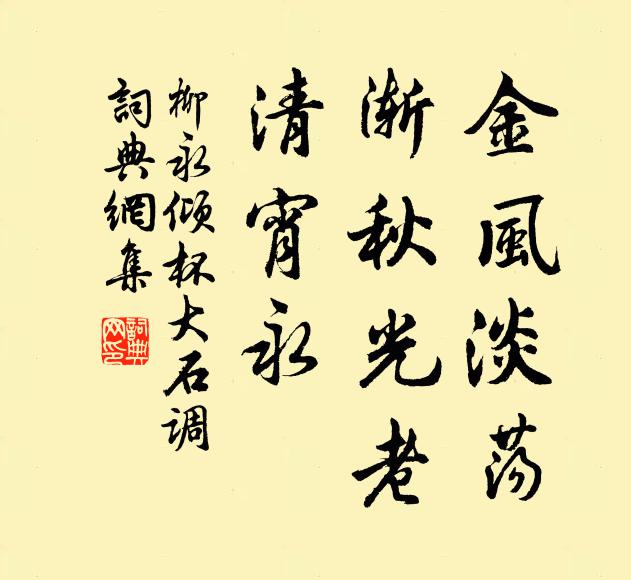 金風淡荡
渐秋光老
清宵永
柳永倾杯大石调
詞典網集
詞典网印